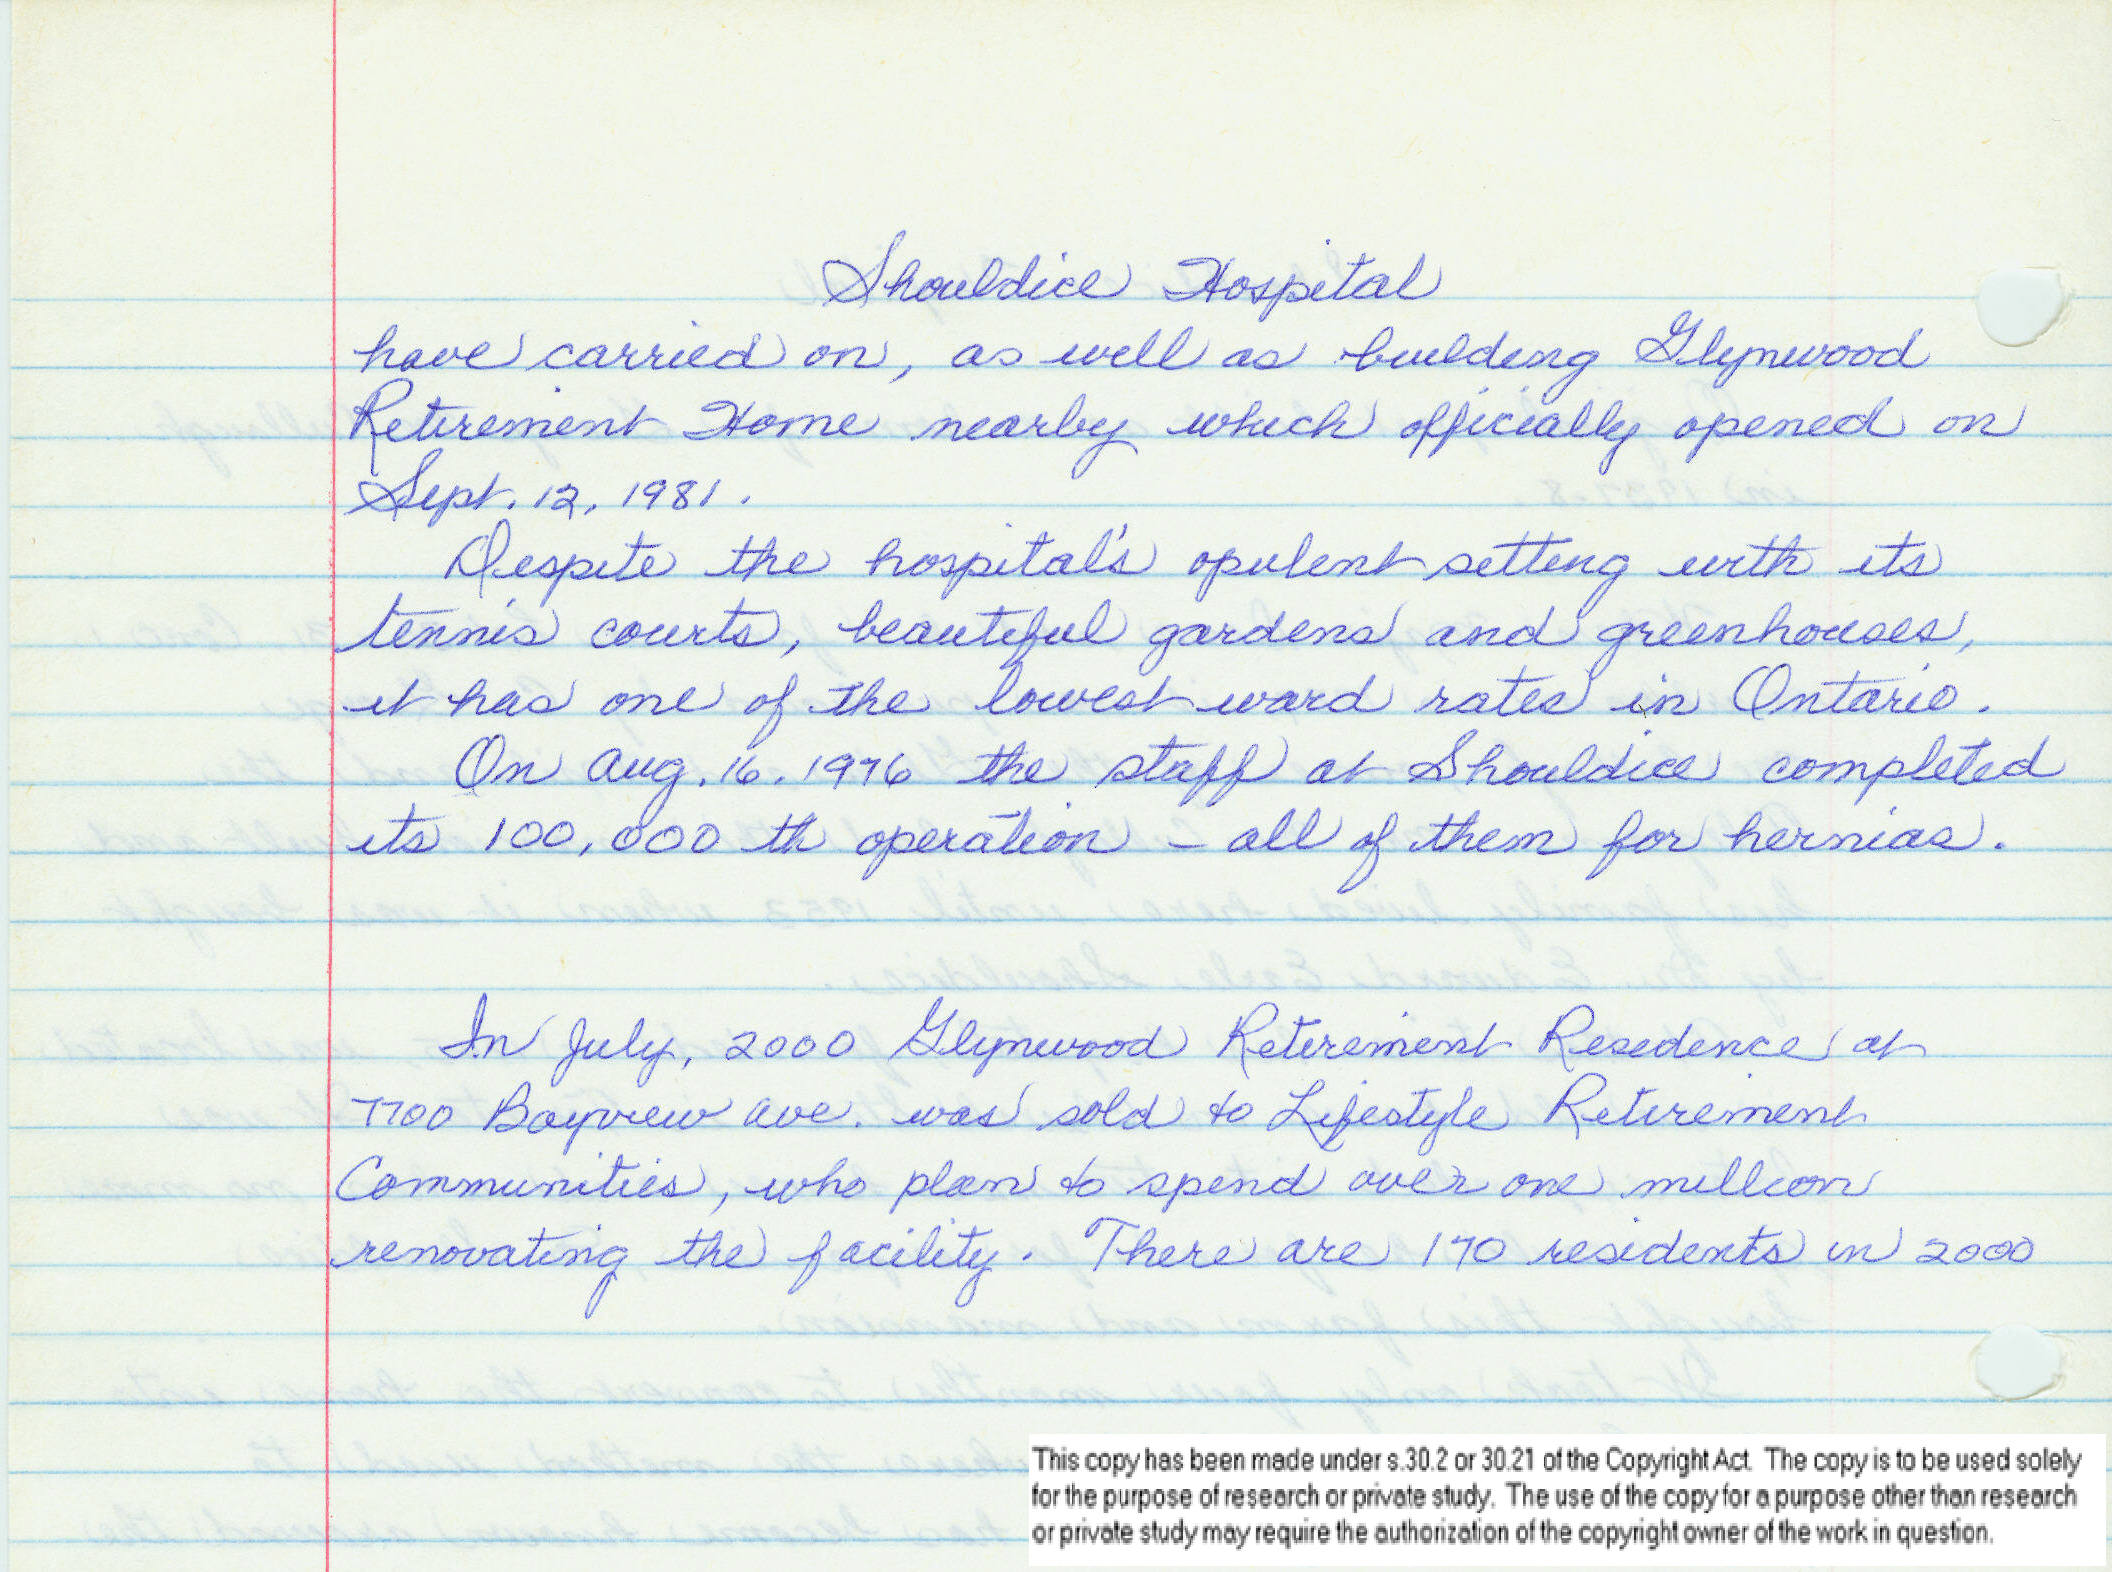 Shouldice Hospital
have carried on, as well as building Glynwood
Retirement Home nearby which officially opened on
Sept. 12, 1981.
Despite the hospital's opulent setting with its
tennis courts, beautiful gardens and greenhouses,
it has one of the lowest ward rates in Ontario.
On Aug. 16. 1976 the staff at Shouldice completed
its 100,000 th operation - all of them for hernias.
In July, 2000 Glynwood Retirement Residence at
7700 Bayview Ave. was sold to Lifestyle Retirement
Communities, who plan to spend over one million
renovating the facility. There are 170 residents in 2000
This copy has been made under s.30.2 or 30.21 of the Copyright Act. The copy is to be used solely
for the purpose of research or private study. The use of the copy for a purpose other than research
or private study may require the authorization of the copyright owner of the work in question.